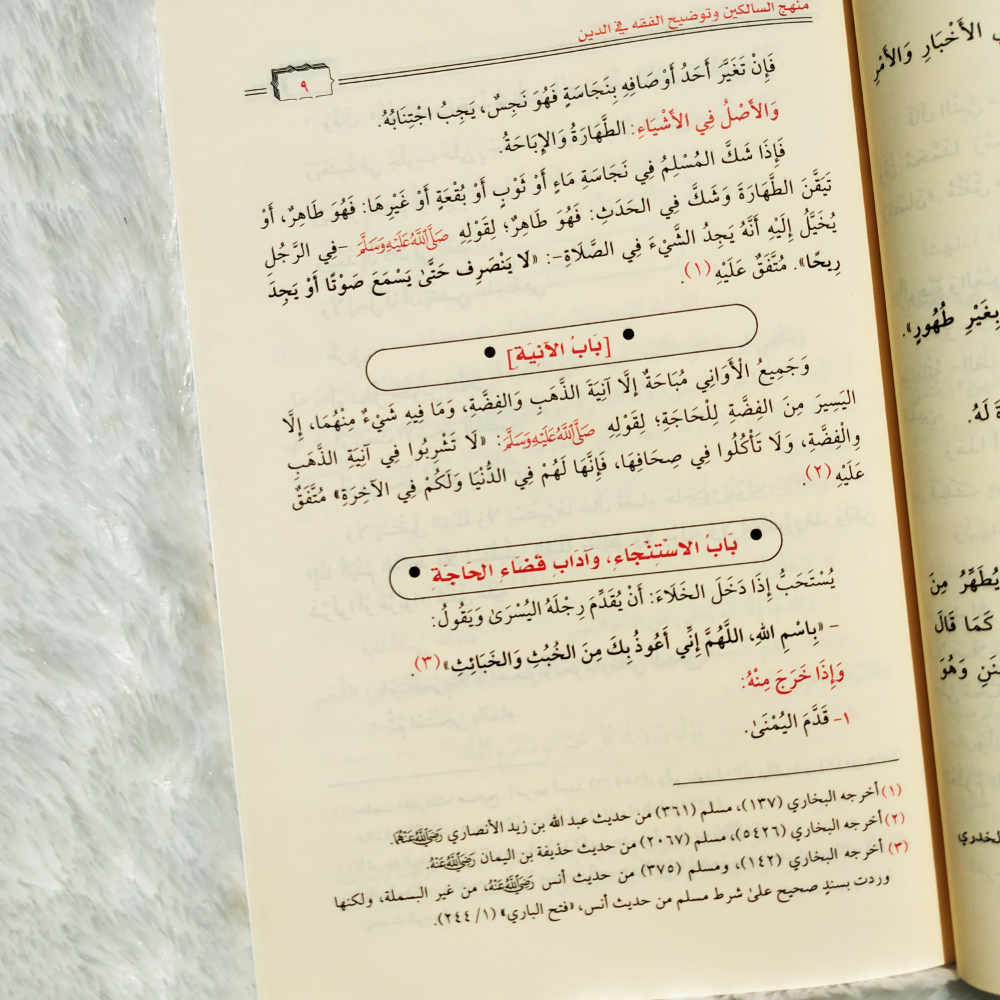 منهج السالكين وتوضيح الفقه في الدين
٩
فَإِنْ تَغَيَّرَ أَحَدُ أَوْصَافِهِ بِنَجَاسَةٍ فَهُوَ نَجِسٌ، يَجِبُ اجْتِنَابُهُ.
وَالأَصْلُ فِي الأَشْيَاءِ: الطَّهَارَةُ وَالإِبَاحَةُ.
فَإِذَا شَكَّ المُسْلِمُ فِي نَجَاسَةِ مَاءٍ أَوْ ثَوْبٍ أَوْ بُقْعَةٍ أَوْ غَيْرِهَا: فَهُوَ طَاهِرٌ، أَوْ
تَيَقَّنَ الطَّهَارَةَ وَشَكَّ فِي الحَدَثِ: فَهُوَ طَاهِرٌ؛ لِقَوْلِهِ صَلَّى اللَّهُ عَلَيْهِ وَسَلَّمَ -فِي الرَّجُلِ
يُخَيَّلُ إِلَيْهِ أَنَّهُ يَجِدُ الشَّيْءَ فِي الصَّلَاةِ-: «لا يَنْصَرِف حَتَّىٰ يَسْمَعَ صَوْتًا أَوْ يَجِدَ
رِيحًا». مُتَّفَقٌ عَلَيْهِ (١).
[بَابُ الآنِيَةِ]
وَجَمِيعُ الأَوَانِي مُبَاحَةٌ إِلَّا آنِيَةَ الذَّهَبِ وَالفِضَّةِ، وَمَا فِيهِ شَيْءٌ مِنْهُمَا، إِلَّا
اليَسِيرَ مِنَ الفِضَّةِ لِلْحَاجَةِ؛ لِقَوْلِهِ صَلَّى اللَّهُ عَلَيْهِ وَسَلَّمَ: «لَا تَشْرَبُوا فِي آنِيَةِ الذَّهَبِ
والْفِضَّةِ، وَلَا تَأْكُلُوا فِي صِحَافِهَا، فَإِنَّهَا لَهُمْ فِي الدُّنْيَا وَلَكُمْ فِي الآخِرَةِ» مُتَّفَقٌ
عَلَيْهِ (٢).
بَابُ الاسْتِنْجَاءِ، وَآدَابِ قَضَاءِ الحَاجَةِ
يُسْتَحَبُّ إِذَا دَخَلَ الخَلَاءَ: أَنْ يُقَدِّمَ رِجْلَهُ اليُسْرَىٰ وَيَقُولُ:
- «بِاسْمِ اللهِ، اللَّهُمَّ إِنِّي أَعُوذُ بِكَ مِنَ الخُبُثِ وَالخَبَائِثِ» (٣).
وَإِذَا خَرَجَ مِنْهُ:
١- قَدَّمَ اليُمْنَىٰ.
(١) أخرجه البخاري (١٣٧)، مسلم (٣٦١) من حديث عبد الله بن زيد الأنصاري رَضِيَ اللَّهُ عَنْهُمَا.
(٢) أخرجه البخاري (٥٤٢٦)، مسلم (٢٠٦٧) من حديث حذيفة بن اليمان رَضِيَ اللَّهُ عَنْهُ.
(٣) أخرجه البخاري (١٤٢)، ومسلم (٣٧٥) من حديث أنس رَضِيَ اللَّهُ عَنْهُ، من غير البسملة، ولكنها
وردت بسندٍ صحيح علىٰ شرط مسلم من حديث أنس، «فتح الباري» (١/ ٢٤٤).
الأَخْبَارِ وَالأَمْرِ
بِغَيْرِ طُهُورٍ».
لَهُ.
يُطَهِّرُ مِنَ
كَمَا قَالَ
وَهُوَ
الخدري